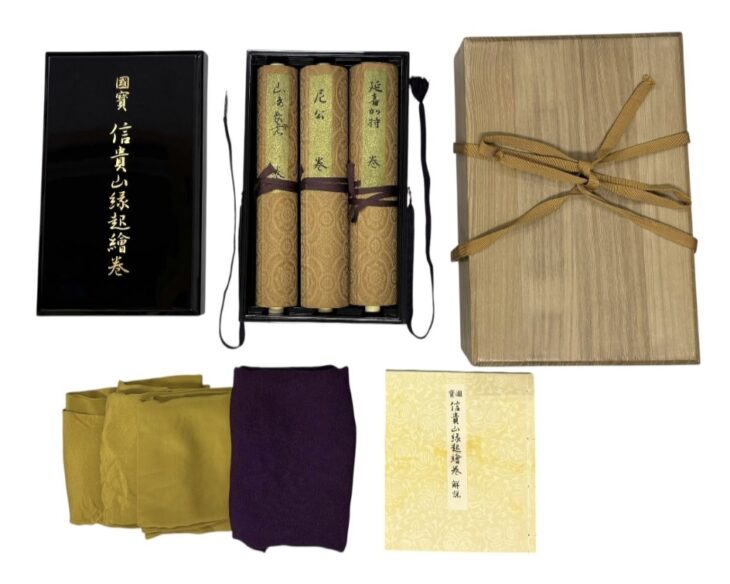 國寶 信貴山縁起繪巻
延喜加持 巻
尼公 巻
國寶
信貴山縁起繪巻 解説